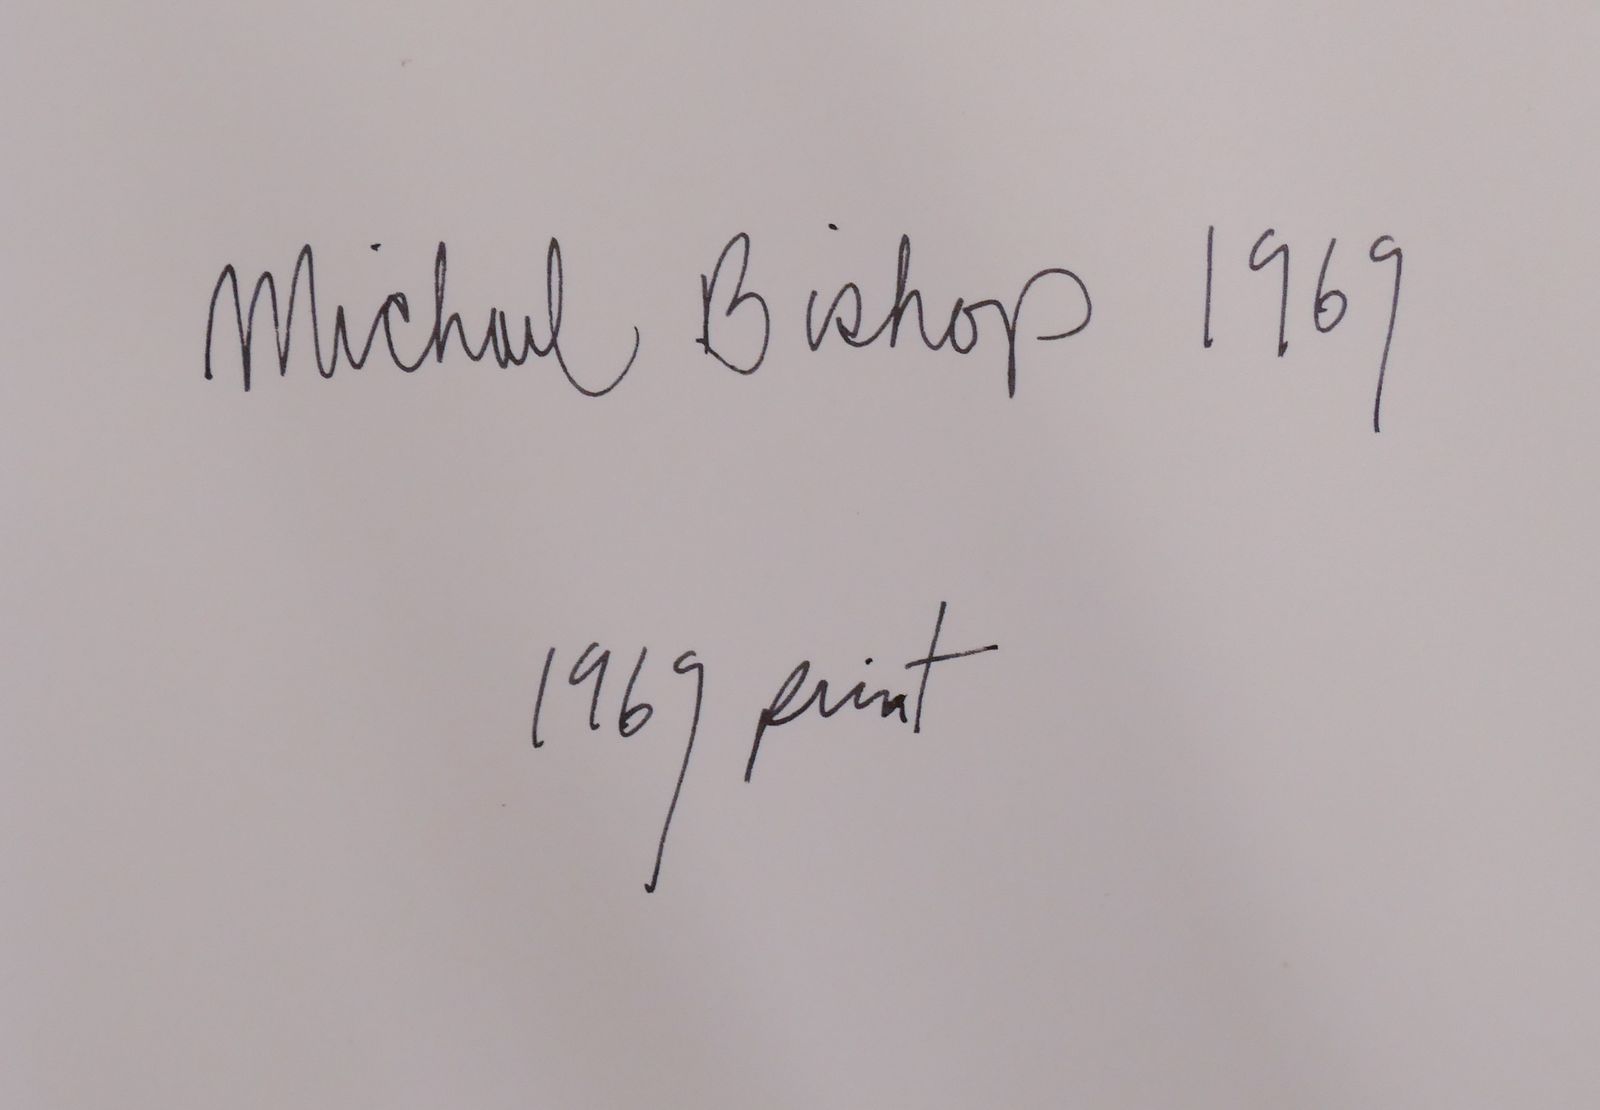 Michael Bishop 1969
1969 print